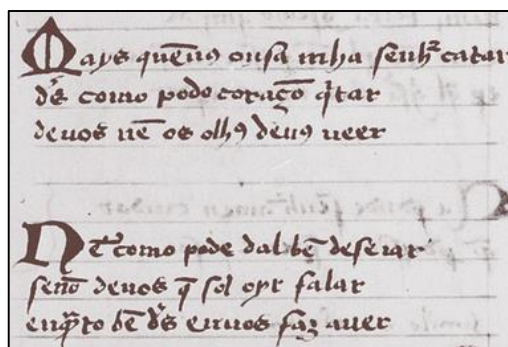 Mays quẽ uꝯ ousa mha senhʳ catar
d̃s como pode coraçõ q̃tar
deuos nẽ os olhꝯ deuꝯ ueer
Nẽ como pode dal bẽ deseiar
senõ deuos q̃ sol oyr falar
en q̃to bẽ d̃s en uos faz auer